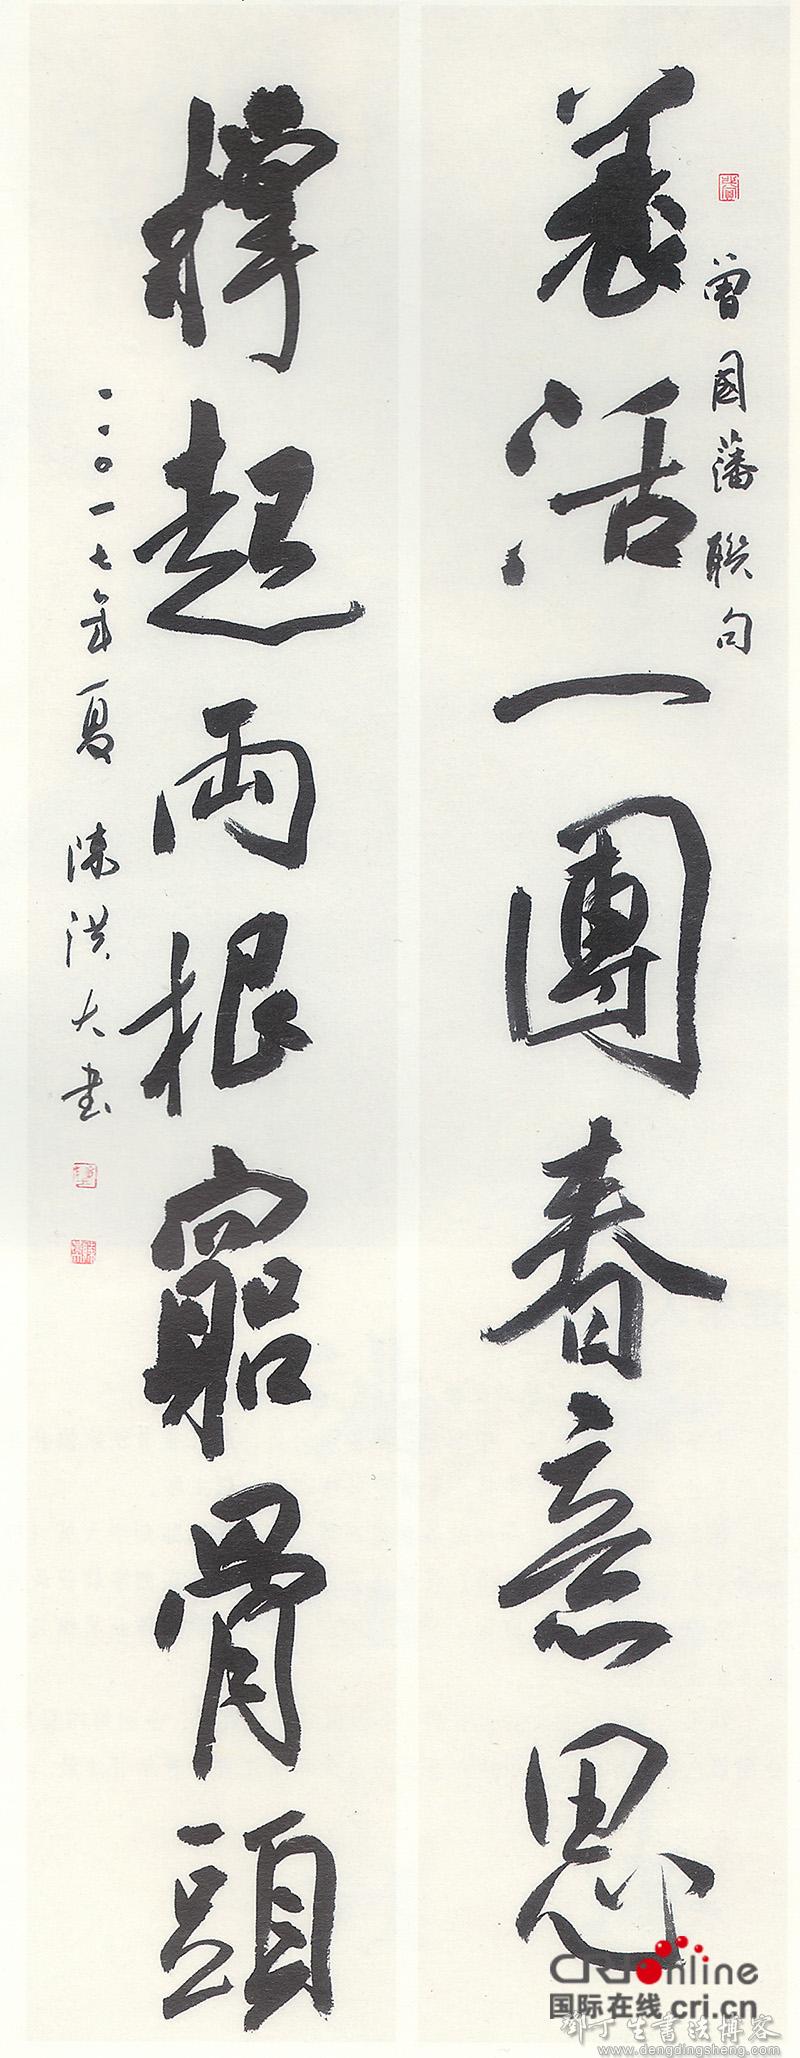 曾國藩聯句
養活一團春意思
撑起兩根竆骨頭
二〇一七年夏 陳洪大書
CRI online
国际在线 cri.cn
鄧丁生書法博客
www.dengdingsheng.com